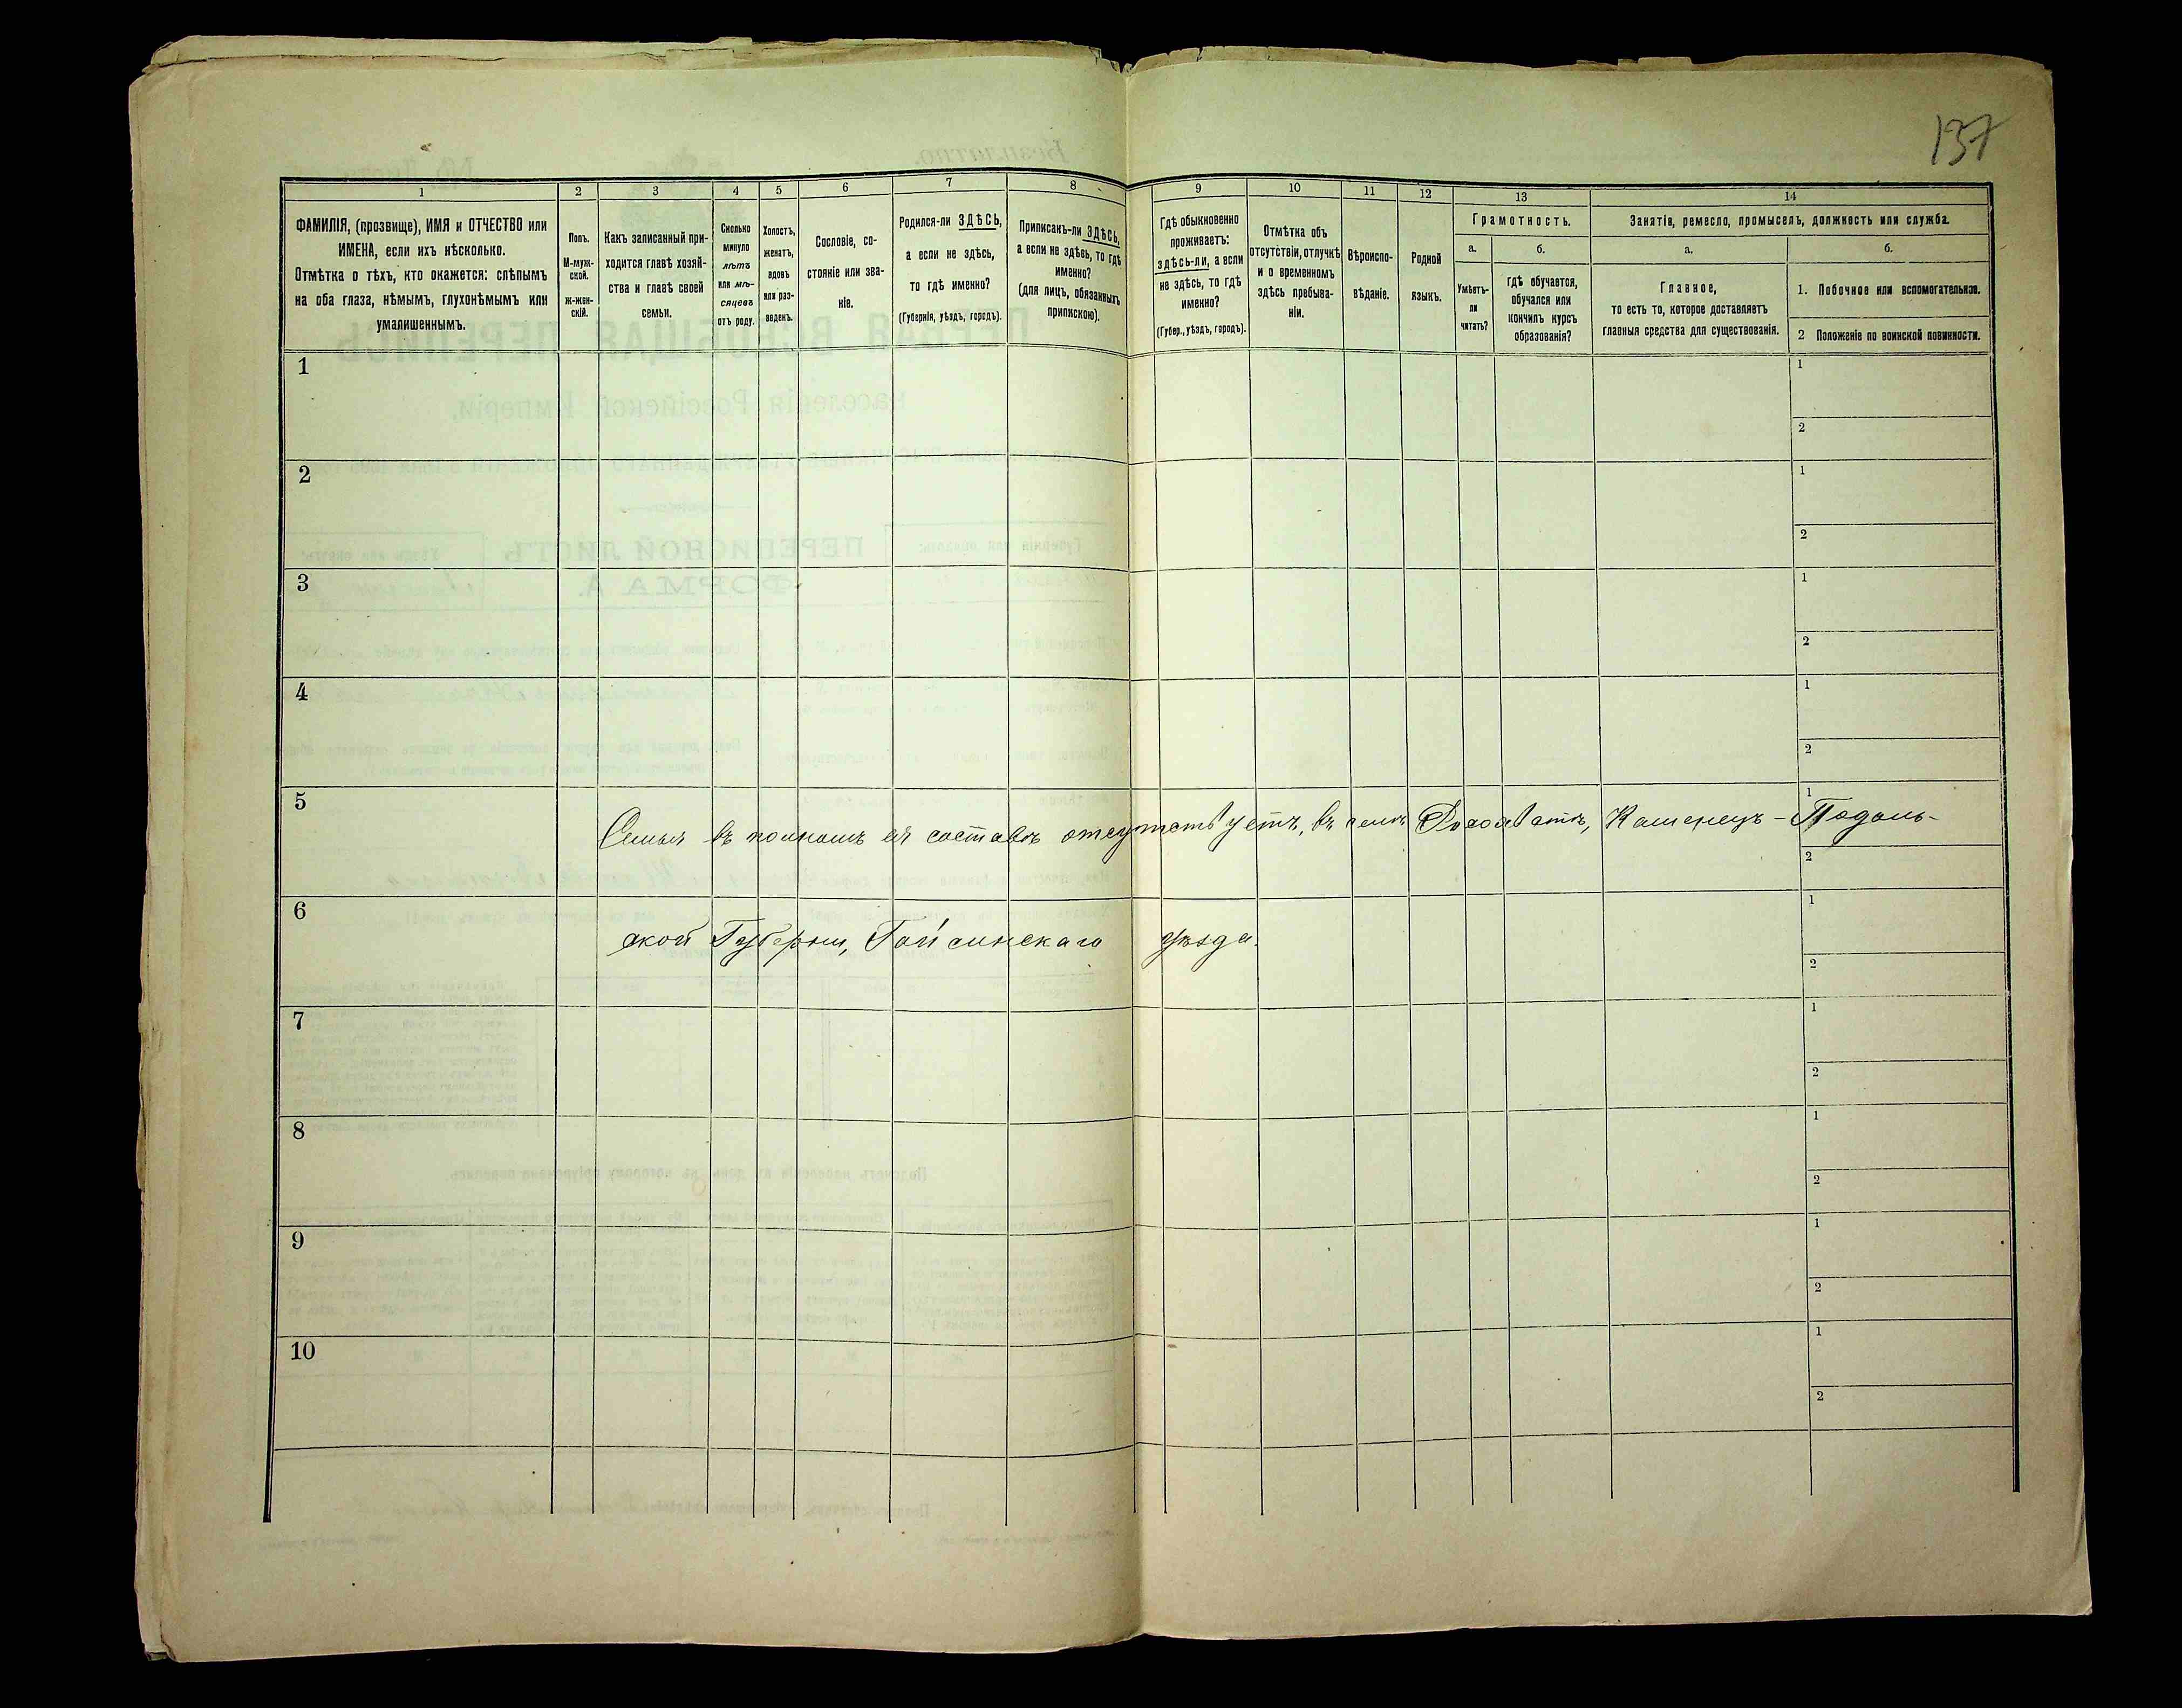 137
1 2 3 4 5 6 7 8 9 10 11 12 13 14
ФАМИЛІЯ, (прозвище), ИМЯ и ОТЧЕСТВО или
ИМЕНА, если ихъ нѣсколько.
Отмѣтка о тѣхъ, кто окажется: слѣпымъ
на оба глаза, нѣмымъ, глухонѣмымъ или
умалишеннымъ.
Полъ.
М-муж-
ской.
Ж-жен-
скій.
Какъ записанный при-
ходится главѣ хозяй-
ства и главѣ своей
семьи.
Сколько
минуло
лѣтъ
или мѣ-
сяцевъ
отъ роду.
Холостъ,
женатъ,
вдовъ
или раз-
веденъ.
Сословіе, со-
стояніе или зва-
ніе.
Родился-ли ЗДѢСЬ,
а если не здѣсь,
то гдѣ именно?
(Губернія, уѣздъ, городъ).
Приписанъ-ли ЗДѢСЬ,
а если не здѣсь, то гдѣ
именно?
(для лицъ, обязанныхъ
припискою).
Гдѣ обыкновенно
проживаетъ:
здѣсь-ли, а если
не здѣсь, то гдѣ
именно?
(Губер., уѣздъ, городъ).
Отмѣтка объ
отсутствіи, отлучкѣ
и о временномъ
здѣсь пребыва-
ніи.
Вѣроиспо-
вѣданіе.
Родной
языкъ.
Грамотность.
а.
Умѣетъ-
ли
читать?
б.
гдѣ обучается,
обучался или
кончилъ курсъ
образованія?
Занятія, ремесло, промыселъ, должность или служба.
а.
Главное,
то есть то, которое доставляетъ
главныя средства для существованія.
б.
1. Побочное или вспомогательное.
2 Положеніе по воинской повинности.
1
1
2
2
1
2
3
1
2
4
1
2
5
1
Семья въ полномъ ея составѣ отсутствуетъ, въ селѣ Каменецъ-Подоль-
2
6
1
ской Губерніи, Гайсинскаго уѣзда.
2
7
1
2
8
1
2
9
1
2
10
1
2